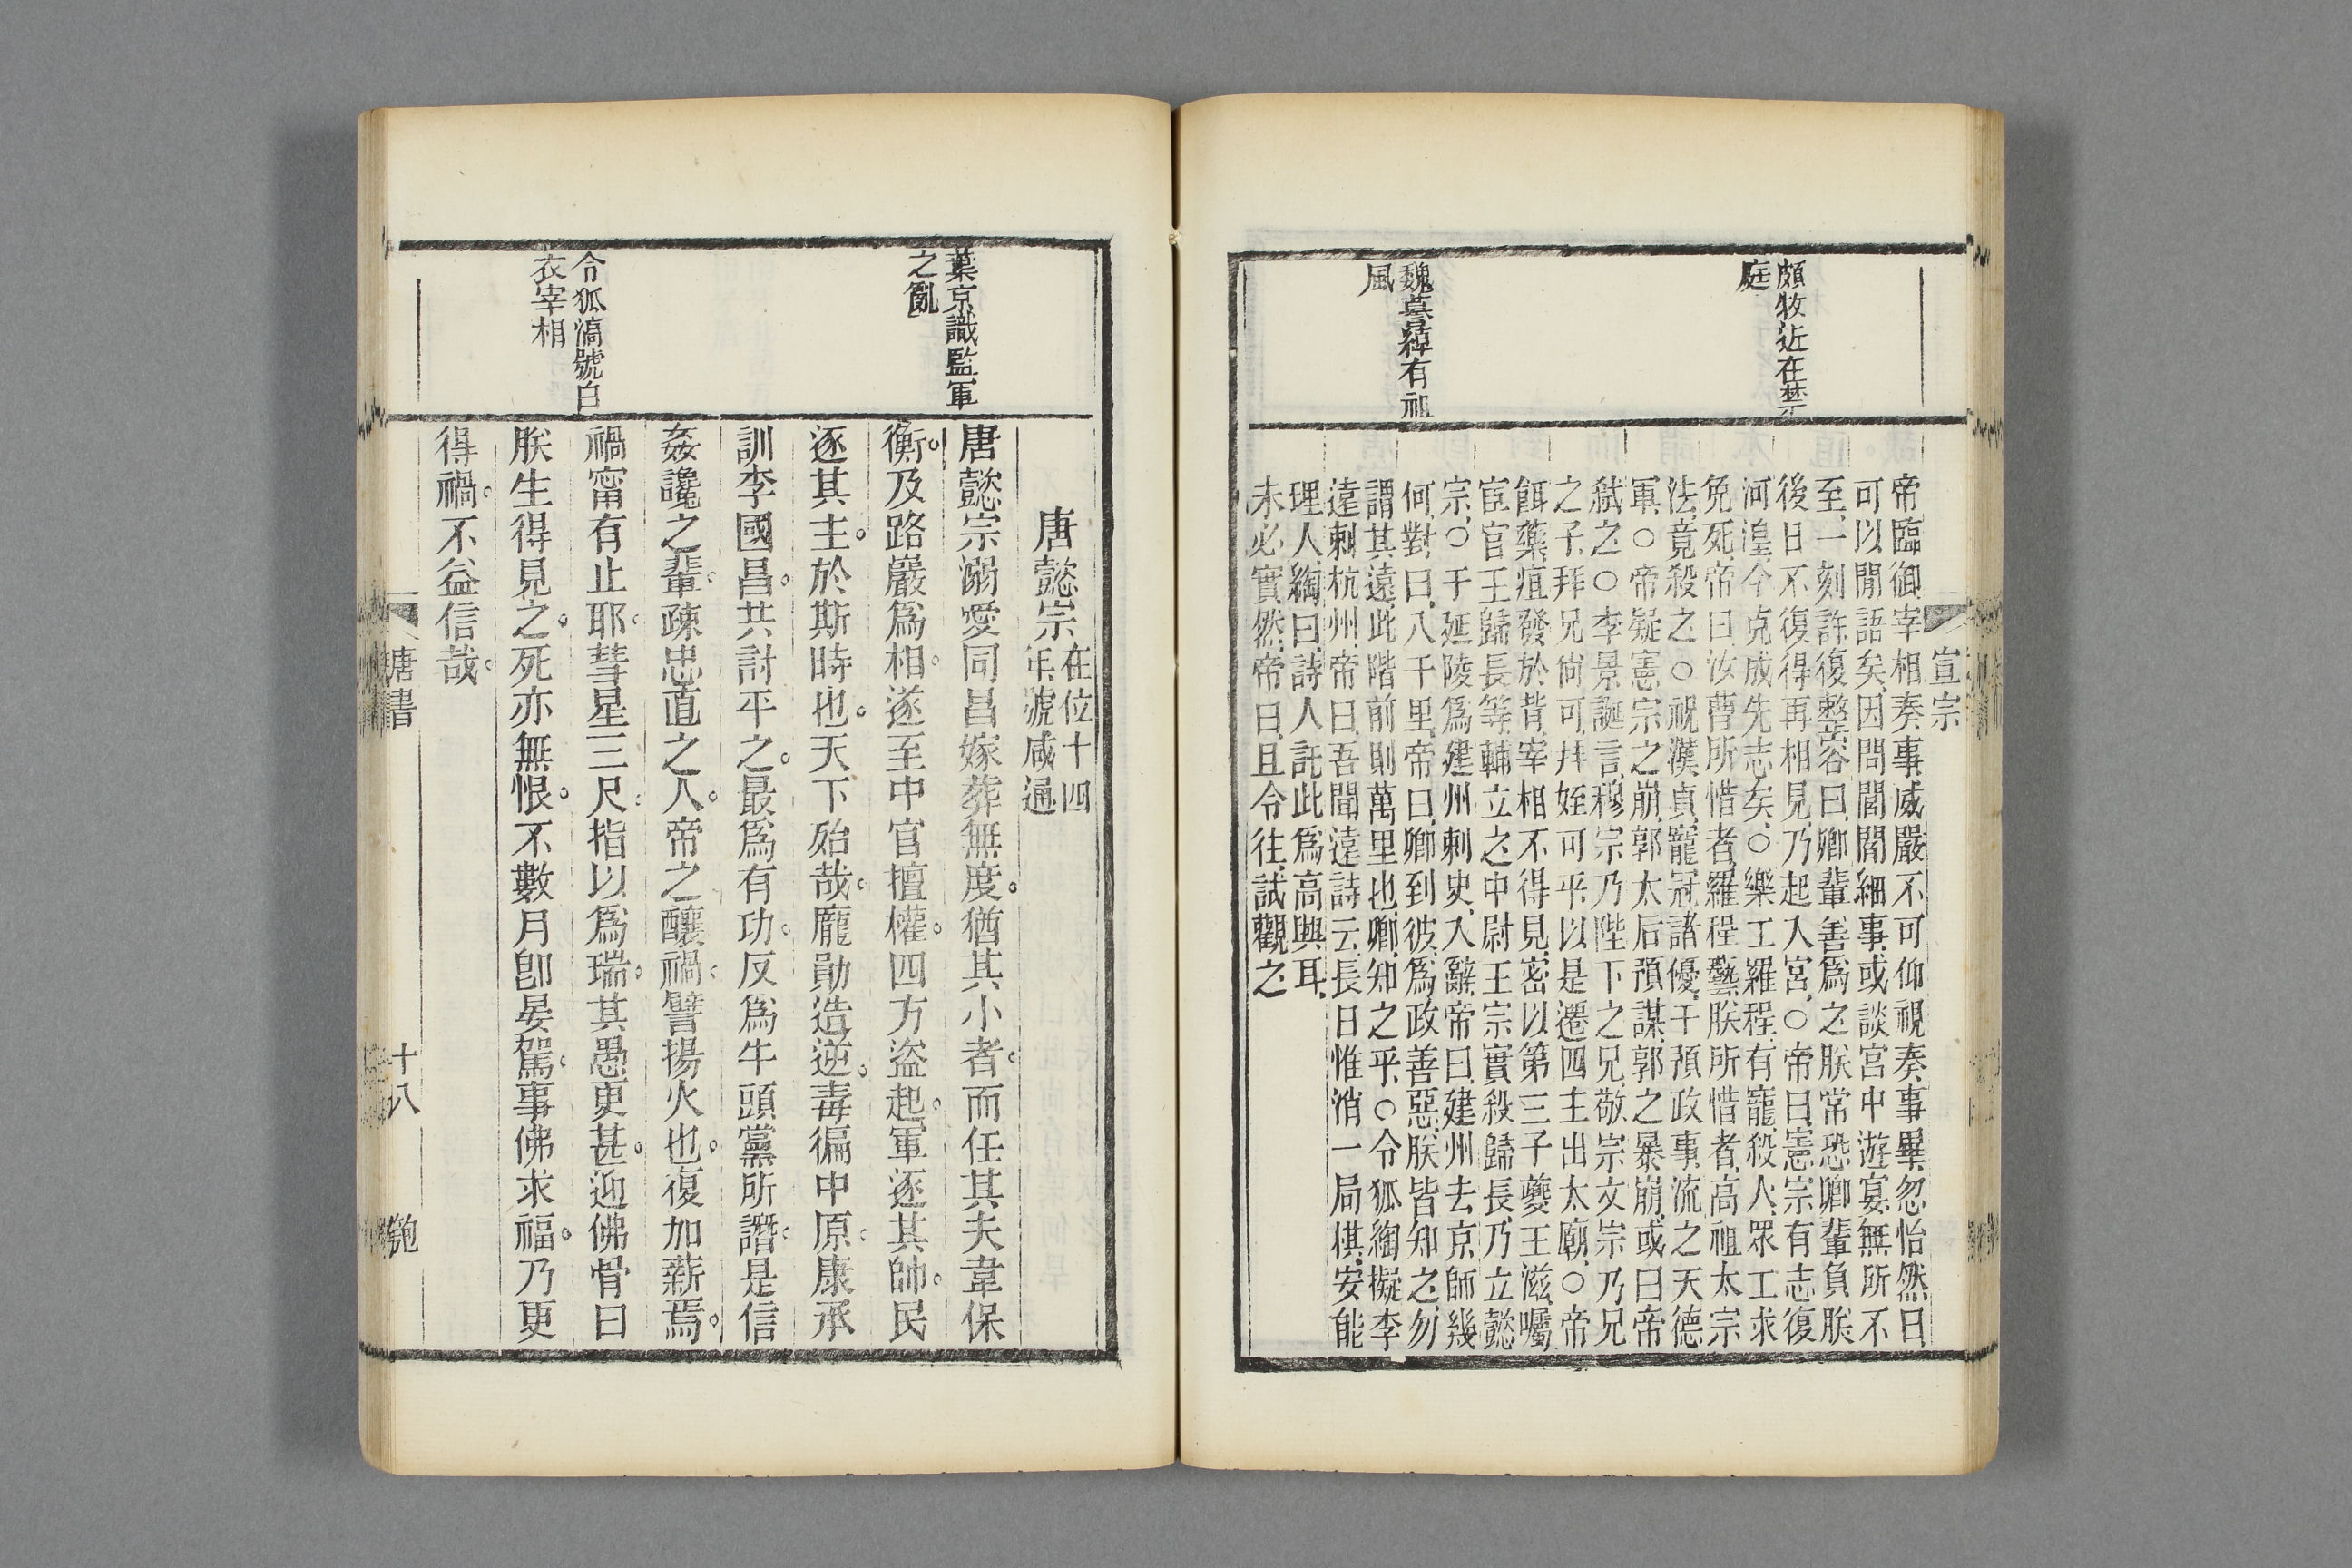 宣宗
頗牧近在禁
庭
魏謩綽有祖
風
帝臨御宰相奏事威嚴不可仰視奏事畢忽怡然曰
可以閒語矣因問閭閻細事或談宮中遊宴無所不
至一刻許復整容曰卿輩善爲之朕常恐卿輩負朕
後日不復得再相見乃起入宮○帝曰憲宗有志復
河湟今克成先志矣○樂工羅程有寵殺人眾工求
免死帝曰汝曹所惜者羅程藝朕所惜者高祖太宗
法竟殺之○祝漢貞寵冠諸優干預政事流之天德
軍○帝疑憲宗之崩郭太后預謀郭之暴崩或曰帝
弒之○李景誕言穆宗乃陛下之兄敬宗文宗乃兄
之子拜兄尚可拜姪可乎以是遷四主出太廟○帝
餌藥疽發於背宰相不得見密以第三子夔王滋囑
宦官王歸長等輔立之中尉王宗實殺歸長乃立懿
宗○于延陵爲建州刺史入辭帝曰建州去京師幾
何對曰八千里帝曰卿到彼爲政善惡朕皆知之勿
謂其遠此階前則萬里也卿知之乎○令狐綯擬李
遠刺杭州帝曰吾聞遠詩云長日惟消一局棋安能
理人綯曰詩人託此爲高興耳
未必實然帝曰且令往試觀之
葉京識監軍
之亂
令狐滈號白
衣宰相
唐懿宗在位十四
年號咸通
唐懿宗溺愛同昌嫁葬無度。猶其小者。而任其夫韋保
衡。及路巖爲相。遂至中官擅權。四方盜起。軍逐其帥。民
逐其主。於斯時也。天下殆哉。龐勛造逆。毒徧中原。康承
訓李國昌。共討平之。最爲有功。反爲牛頭黨所譖。是信
姦讒之輩。疎忠直之人。帝之釀禍。譬揚火也。復加薪焉。
禍甯有止耶。彗星三尺。指以爲瑞。其愚更甚。迎佛骨曰
朕生得見之。死亦無恨。不數月卽晏駕。事佛求福。乃更
得禍。不益信哉。
唐書
十八
匏